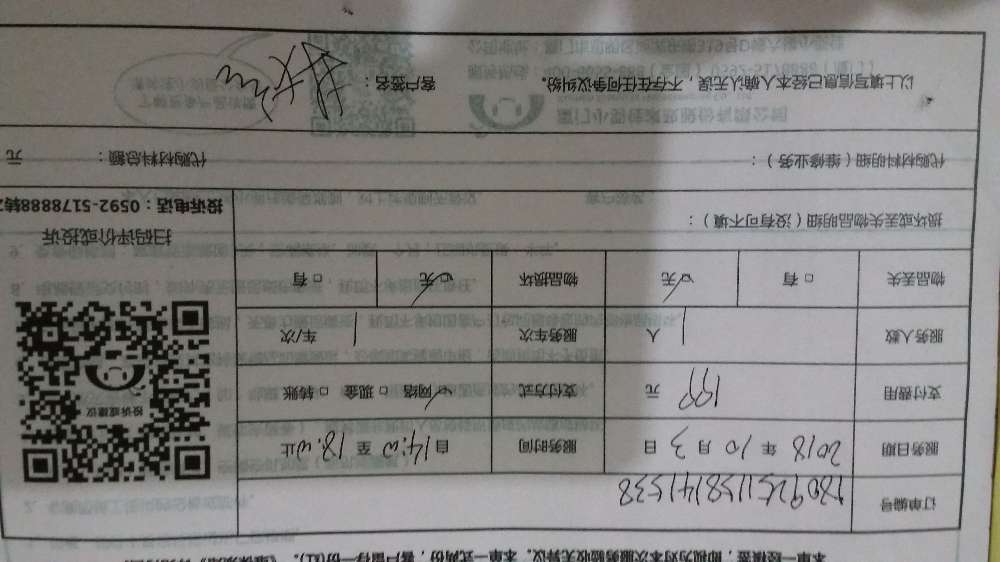 本单一经签署，即视为对本次服务验收无异议。本单一式两份，客户留存一份(红)。
订单编号 1809251158141538
服务日期 2018 年 10 月 3 日 服务时间 自 14:00 至 18:00 止
支付费用 199 元 支付方式 ☑网络 □ 现金 □ 转账
服务人数 1 人 服务车次 1 车/次
物品丢失 □ 有 ☑无 物品损坏 ☑无 □ 有
损坏或丢失物品明细（没有可不填）：
投诉或建议
扫码评价或投诉
投诉电话：0592-5178888转2
代购材料明细（维修业务）： 代购材料总额： 元
以上填写信息已经本人确认无误，不存在任何争议纠纷。 客户签名：